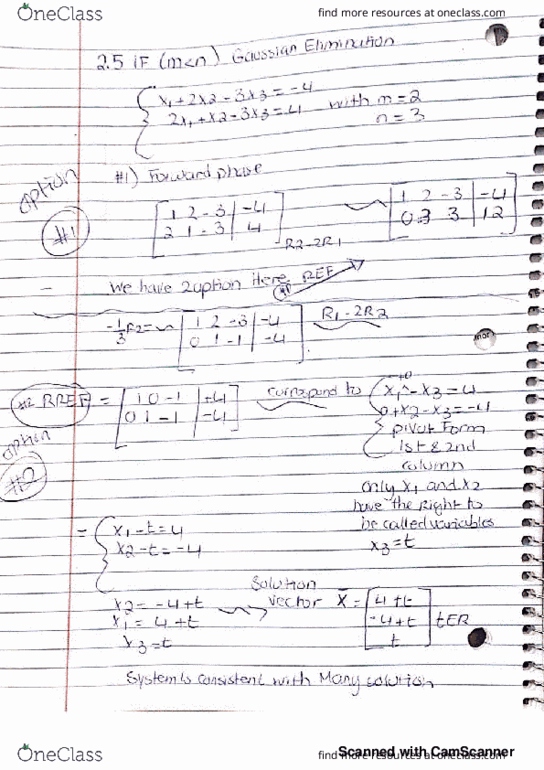 OneClass
find more resources at oneclass.com
2.5 if (m<n) Gaussian Elimination
x1+2x2-3x3=-4
2x1+x2-3x3=4
with m=2
n=3
option
#1
#1) Forward phase
1 2 -3 | -4
2 1 -3 | 4
R2-2R1
1 2 -3 | -4
0 -3 3 | 12
We have 2 option Here REF
-1/3 R2= ~
1 2 -3 | -4
0 1 -1 | -4
R1-2R2
#2 RREF =
1 0 -1 | +4
0 1 -1 | -4
corrospond to
x1+0-x3=4
0+x2-x3=-4
option
#2
pivot Form
1st & 2nd
column
only x1 and x2
have the Right to
be called variables
x3=t
= x1-t=4
x2-t=-4
x2=-4+t
x1=4+t
x3=t
Solution
vector X =
4+t
-4+t
t
tER
System is consistent with Many solution
OneClass
find more resources at oneclass.com
Scanned with CamScanner